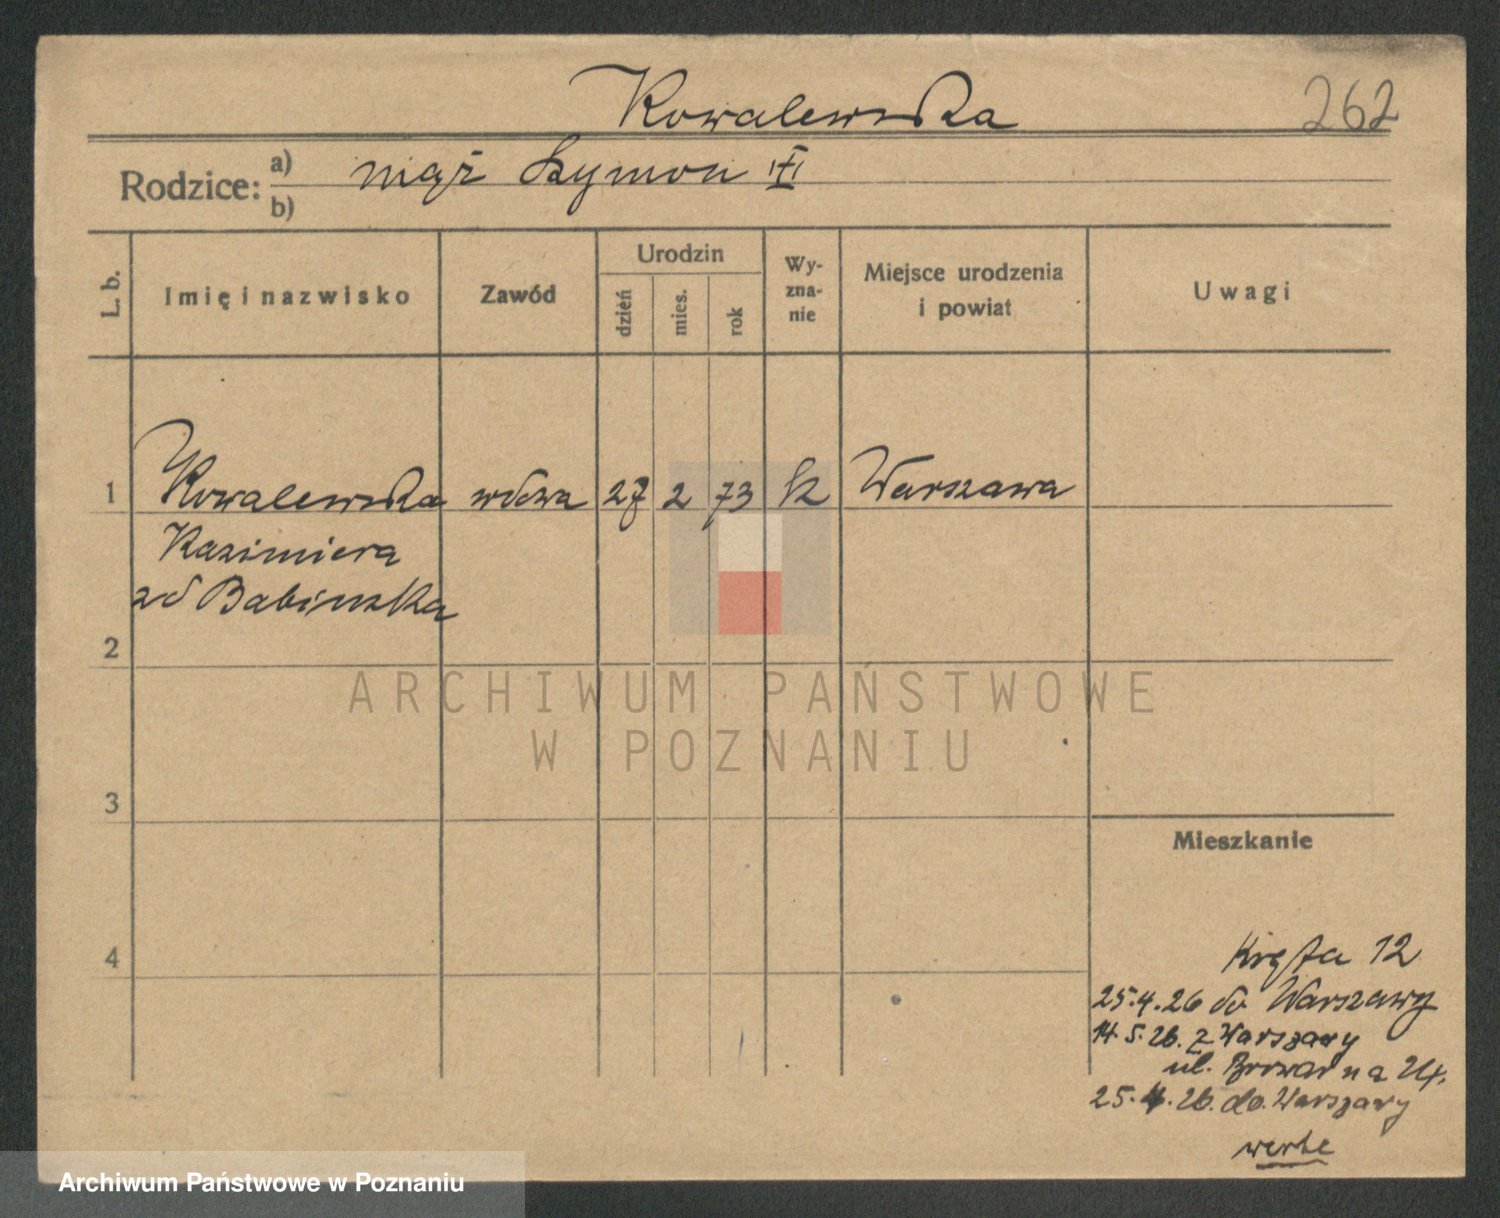 Kowalewska
262
Rodzice: a) mąż Szymon
b)
L. b.
Imię i nazwisko
Zawód
Urodzin
dzień
mies.
rok
Wy-
zna-
nie
Miejsce urodzenia
i powiat
Uwagi
1 Kowalewska wdowa 27 2 73 k Warszawa
Kazimiera
zd Babinska
2
ARCHIWUM PAŃSTWOWE
W POZNANIU
3
Mieszkanie
4
Kręta 12
25.4.26 do Warszawy
14.5.26. z Warszawy
ul. Browarna 24.
25.4.26. do Warszawy
Archiwum Państwowe w Poznaniu